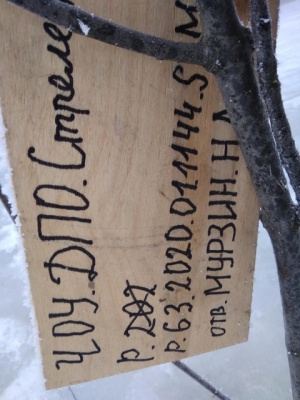 ЧОУ.ДПО.Стреле
р.
р.63.2020.011144.S м
отв. МУРЗИН.Н